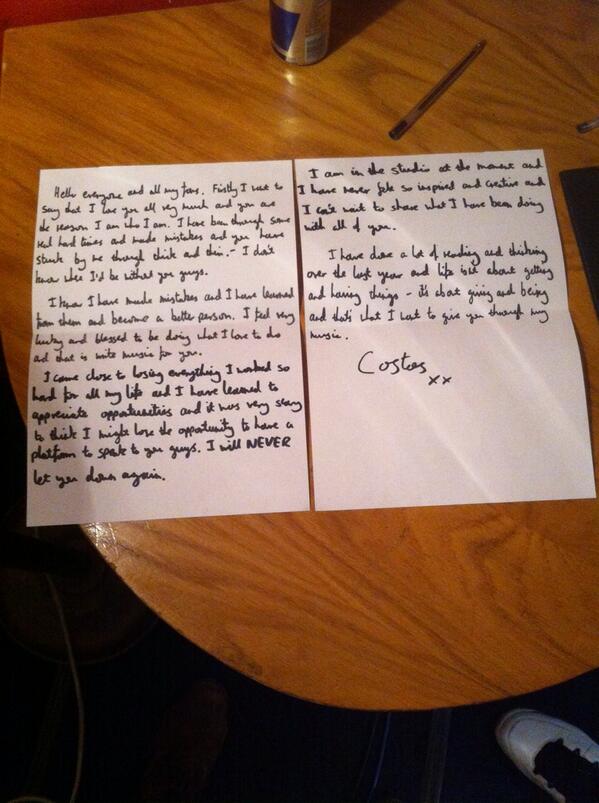 Hello everyone and all my fans. Firstly I want to
say that I love you all very much and you are
the reason I am who I am. I have been through some
real hard times and made mistakes and you have
stuck by me through thick and thin. - I don't
know where I'd be without you guys.
I know I have made mistakes and I have learned
from them and become a better person. I feel very
lucky and blessed to be doing what I love to do
and that is write music for you.
I came close to losing everything I worked so
hard for all my life and I have learned to
appreciate opportunities and it was very scary
to think I might lose the opportunity to have a
platform to speak to you guys. I will NEVER
let you down again.
I am in the studio at the moment and
I have never felt so inspired and creative and
I can't wait to share what I have been doing
with all of you.
I have done a lot of reading and thinking
over the last year and life isn't about getting
and having things - it's about giving and being
and that's what I want to give you through my
music.
Costas
xx